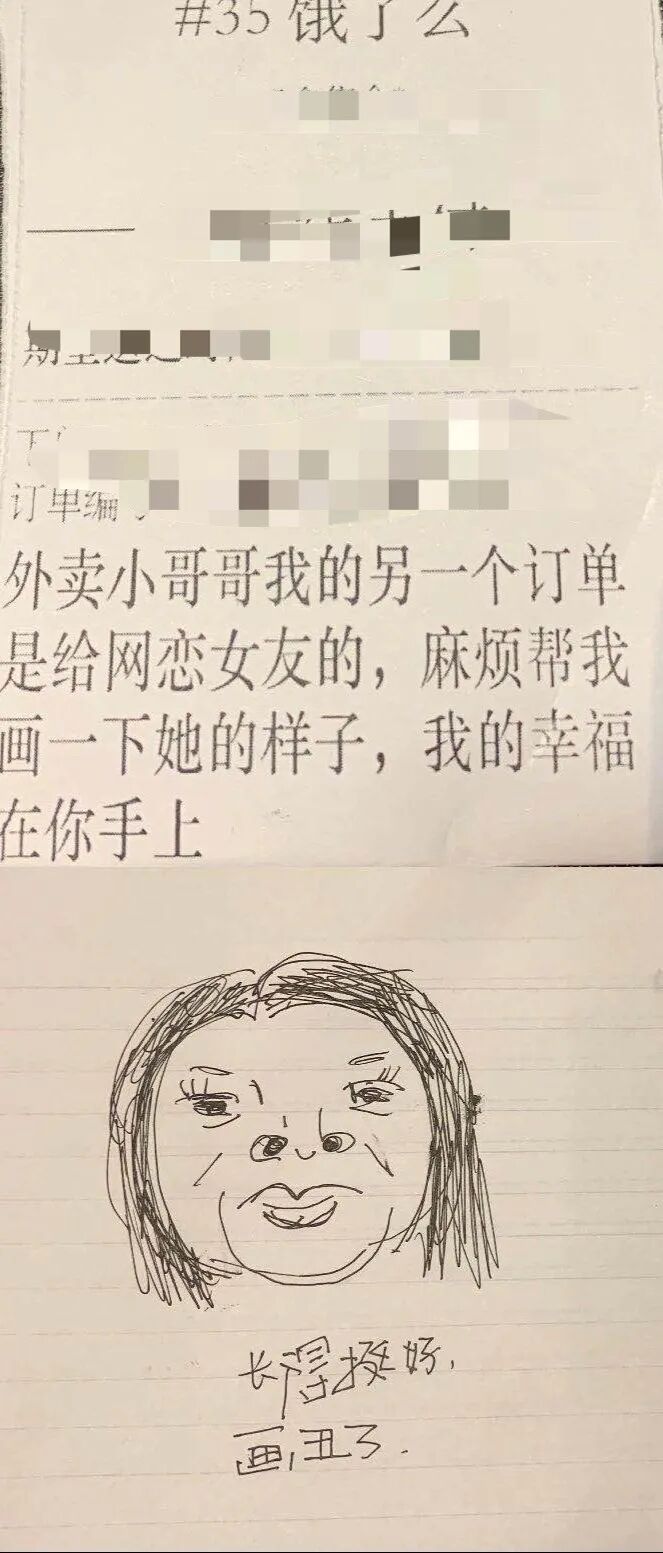 #35 饿了么
订单编
外卖小哥哥我的另一个订单
是给网恋女友的，麻烦帮我
画一下她的样子，我的幸福
在你手上
长得挺好，
画丑了.